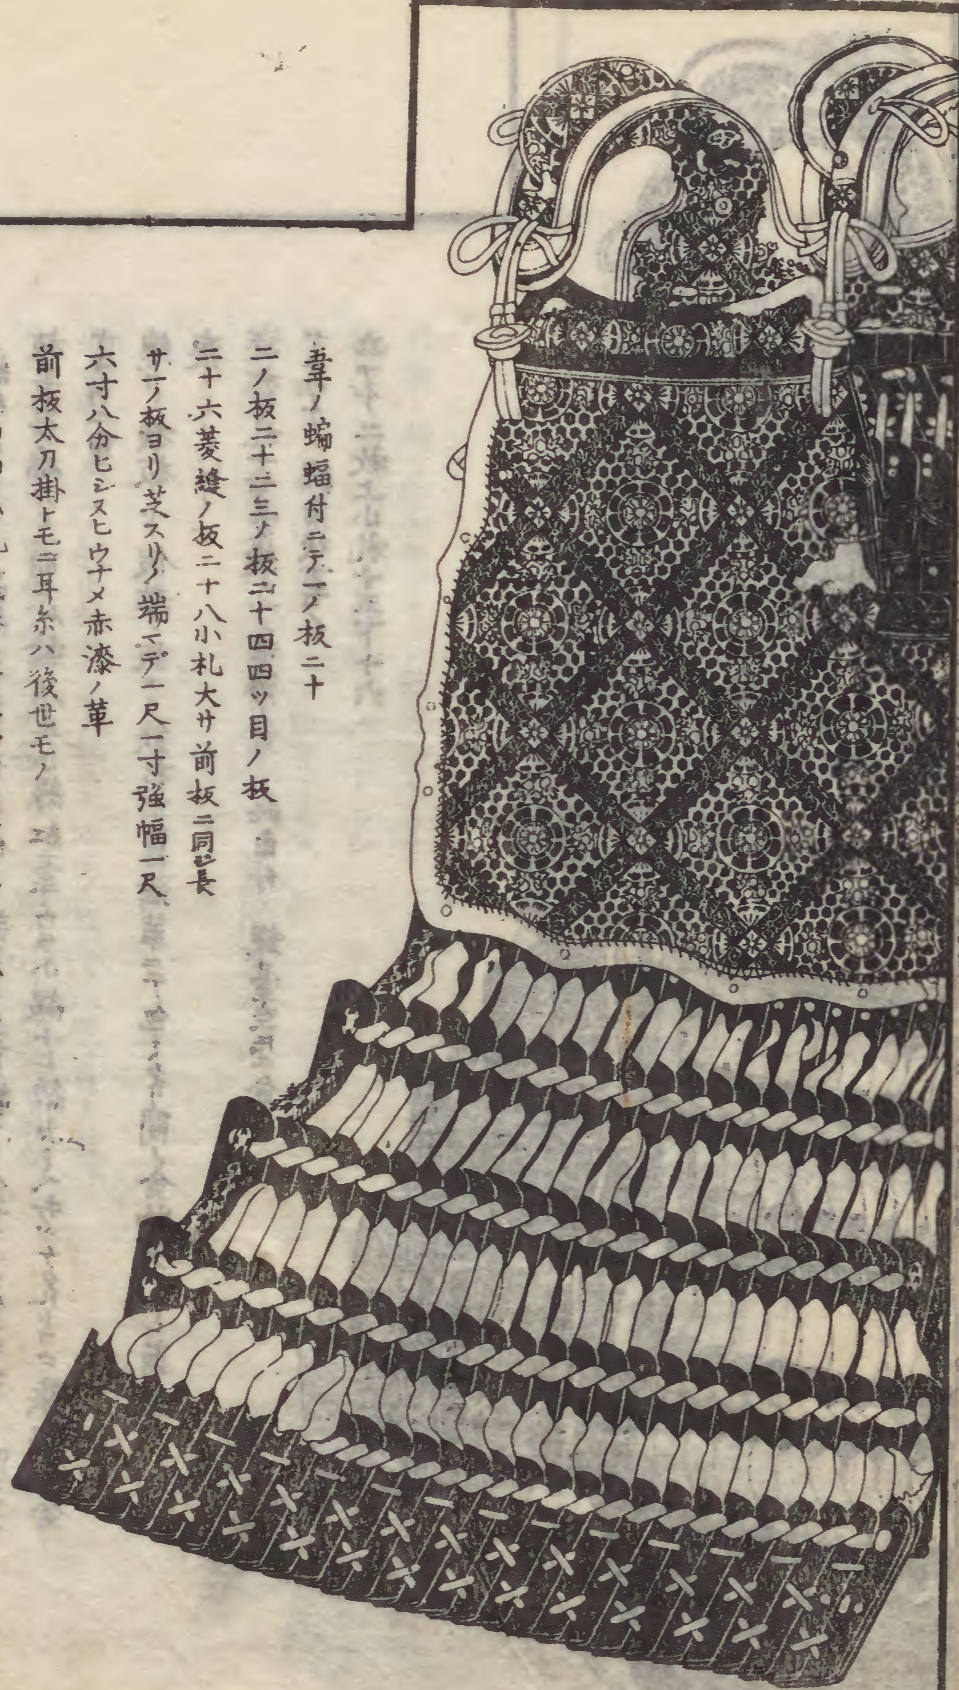 弦走ノ蝙蝠付ニテ一ノ板二十
二ノ板二十二三ノ板二十四四ツ目ノ板
二十六菱縫ノ板二十八小札大サ前板ニ同シ長
サ一ノ板ヨリ芝スリノ端マデ一尺一寸強幅一尺
六寸八分ヒシヌヒウナメ赤漆ノ革
前板太刀掛トモニ耳糸ハ後世モノ